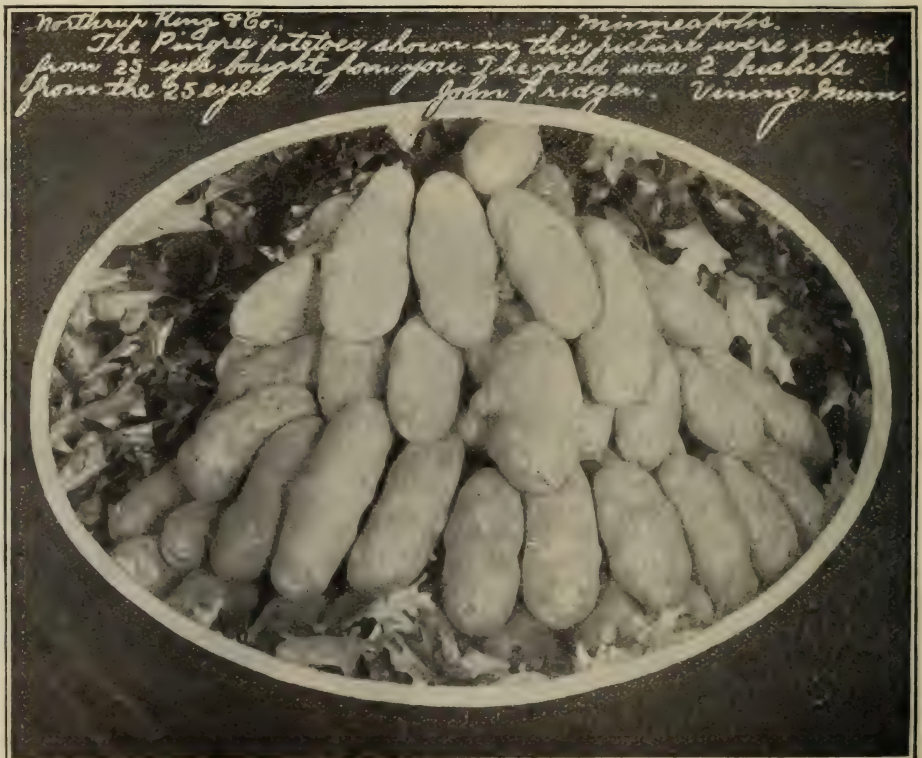 Northrup King & Co. Minneapolis.
The Pingree potatoes shown in this picture were raised
from 25 eyes bought from you The yield was 2 bushels
from the 25 eyes John Fridgen. Vining Minn.